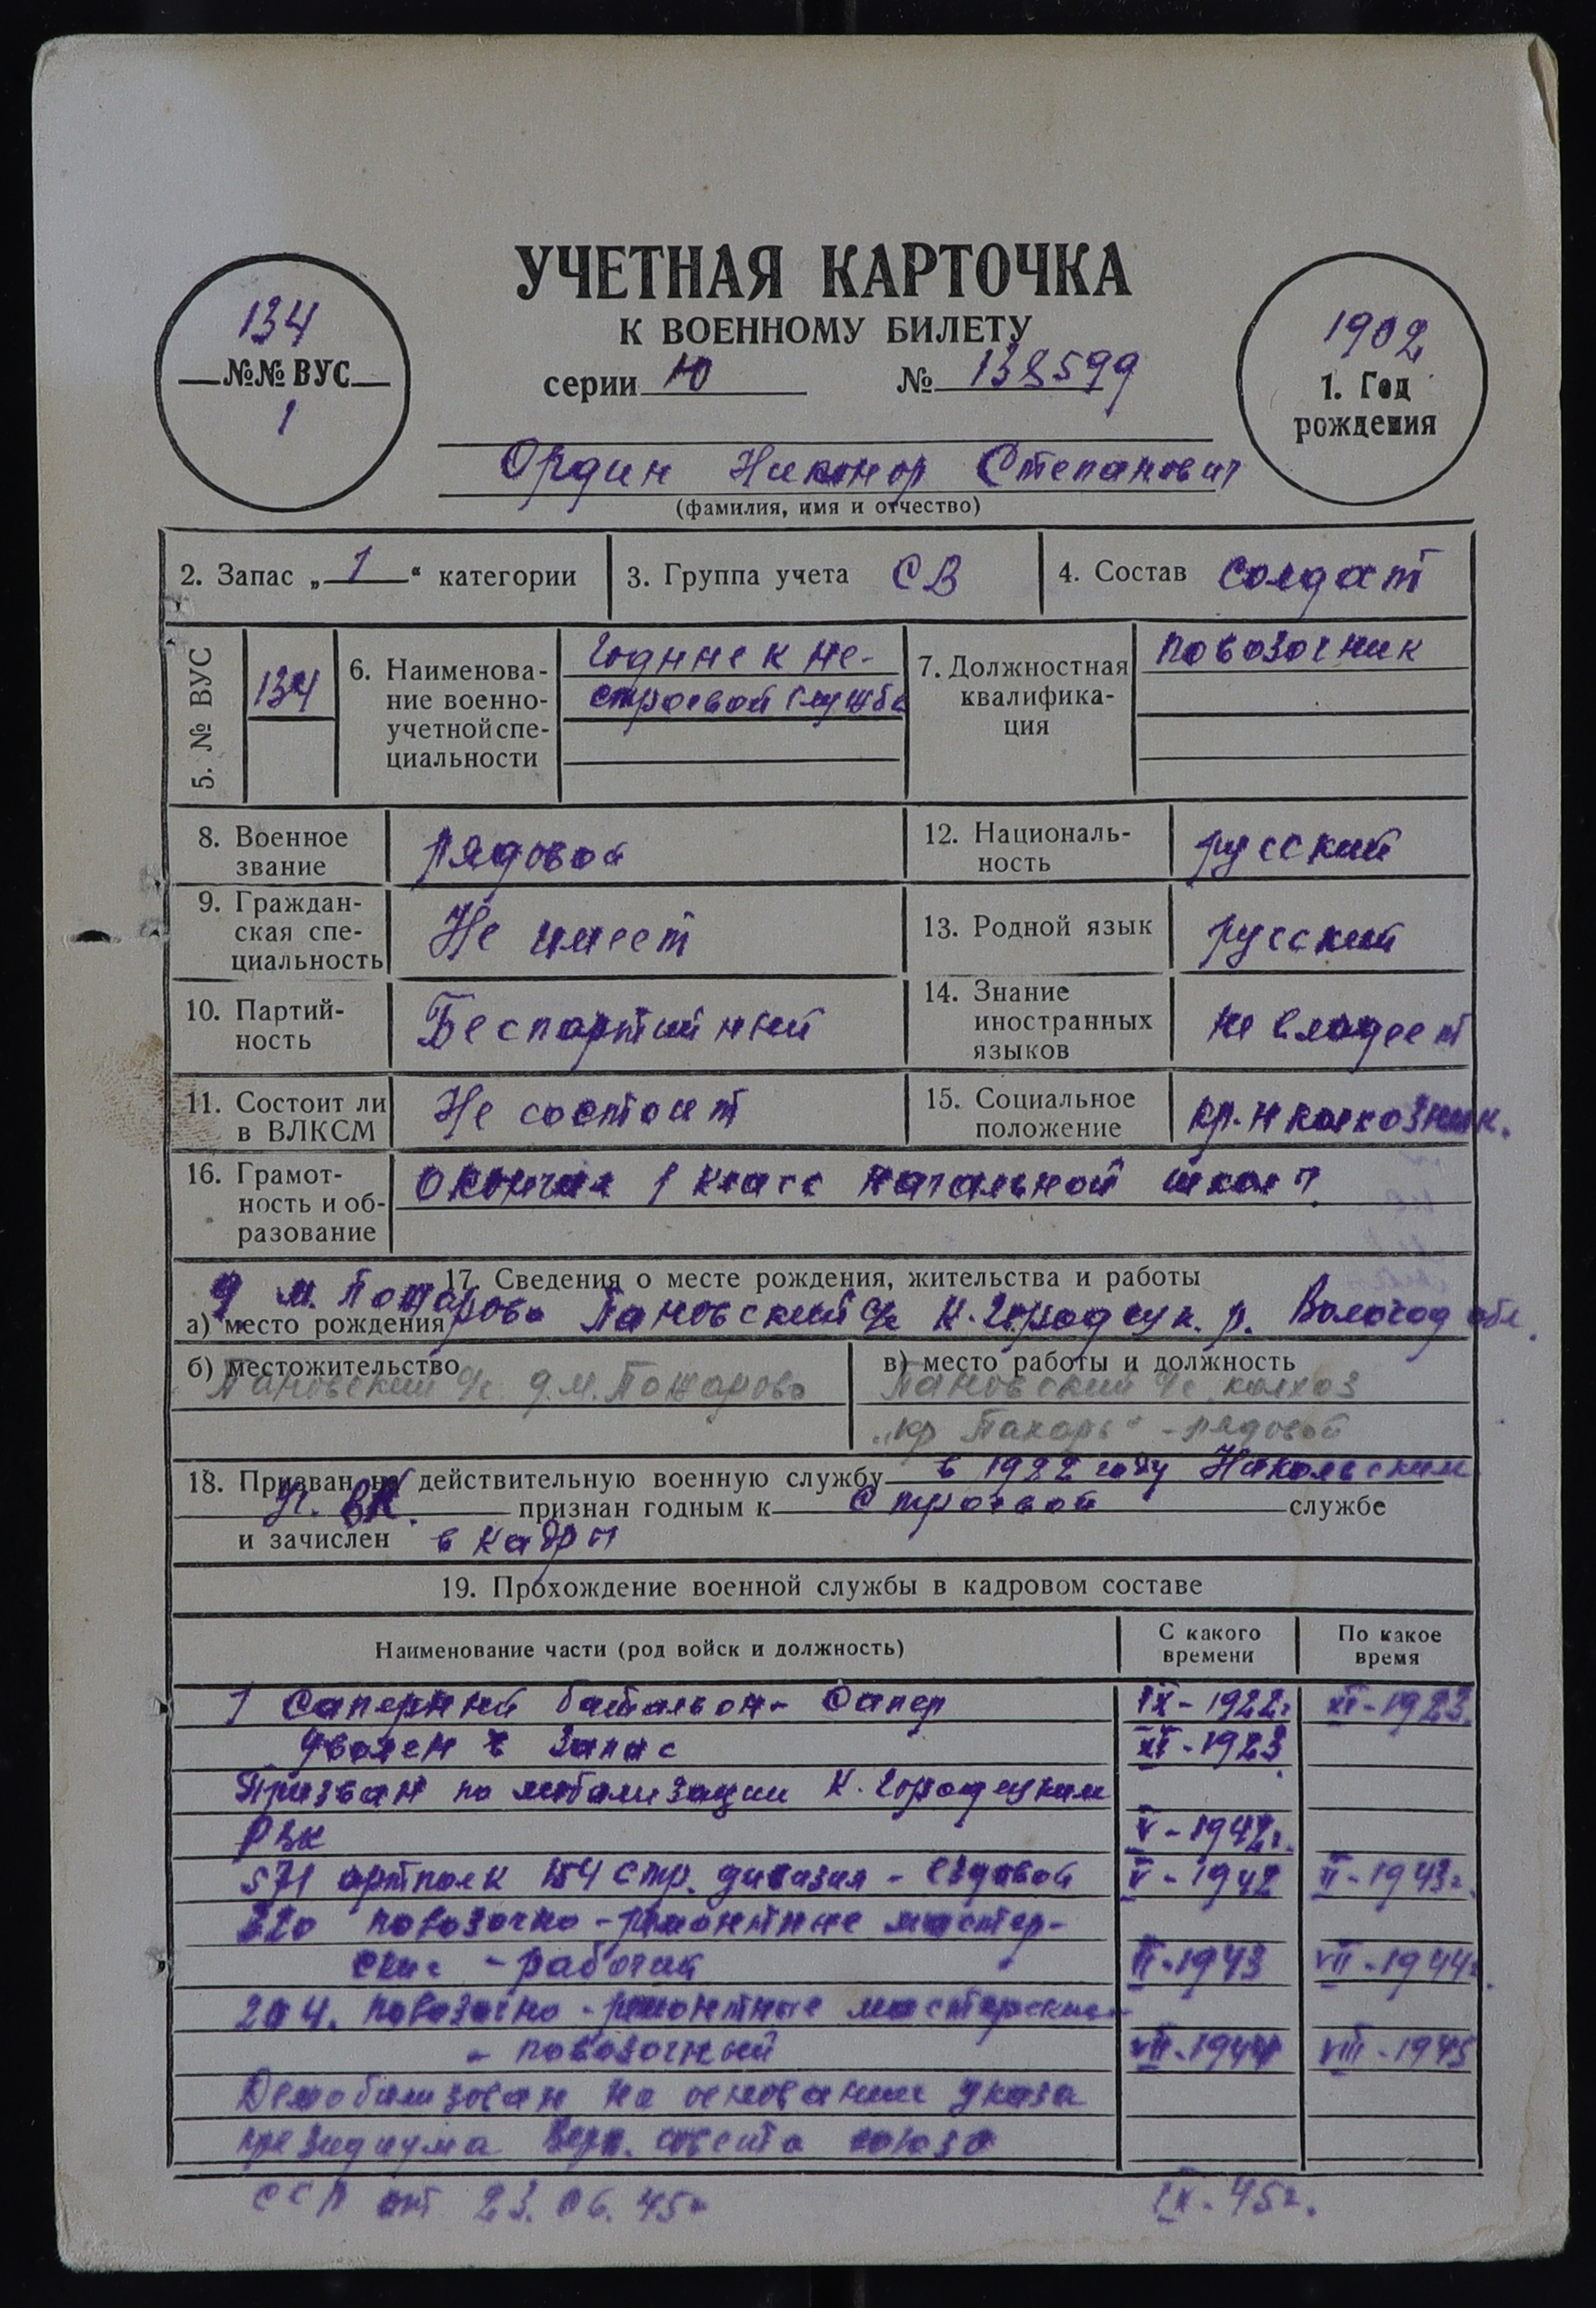 УЧЕТНАЯ КАРТОЧКА
К ВОЕННОМУ БИЛЕТУ
серии Ю № 138599
134
№№ ВУС
1
1902
1. Год
рождения
Ордин Никонор Степанович
(фамилия, имя и отчество)
2. Запас „ 1 “ категории
3. Группа учета СВ
4. Состав солдат
5. № ВУС
134
6. Наименова-
ние военно-
учетной спе-
циальности
Годные к не-
строевой службе
7. Должностная
квалифика-
ция
повозочник
8. Военное
звание
рядовой
12. Националь-
ность
русский
9. Граждан-
ская спе-
циальность
Не имеет
13. Родной язык
русский
10. Партий-
ность
Беспартийный
14. Знание
иностранных
языков
не владеет
11. Состоит ли
в ВЛКСМ
Не состоит
15. Социальное
положение
кр-н колхозник.
16. Грамот-
ность и об-
разование
Окончил 1 класс начальной школы
17. Сведения о месте рождения, жительства и работы
а) место рождения д м. Пожарово Пановский с/с К. Городецк. р. Вологод обл.
б) местожительство
Пановский с/с д. М. Пожарово
в) место работы и должность
Пановский с/с колхоз
„кр Пахарь“ - рядовой
18. Призван на действительную военную службу в 1922 году Никольским
У. ВК. признан годным к строевой службе
и зачислен в кадры
19. Прохождение военной службы в кадровом составе
Наименование части (род войск и должность)
С какого
времени
По какое
время
1 Саперный батальон - Сапер IX - 1922г XI - 1923.
Уволен в запас XI - 1923
Призван по мобилизации К. Городецким
РВК V - 1942г.
571 артполк 154 стр. дивизия - ездовой V - 1942 II - 1943г.
220 повозочно - ремонтные мастер-
ские - рабочий II - 1943 VII - 1944г.
204. повозочно - ремонтные мастерские
- повозочный VII - 1944 VIII - 1945
Демобилизован на основании указа
президиума Верх. совета союза
ССР от 23.06.45г IX. 45г.